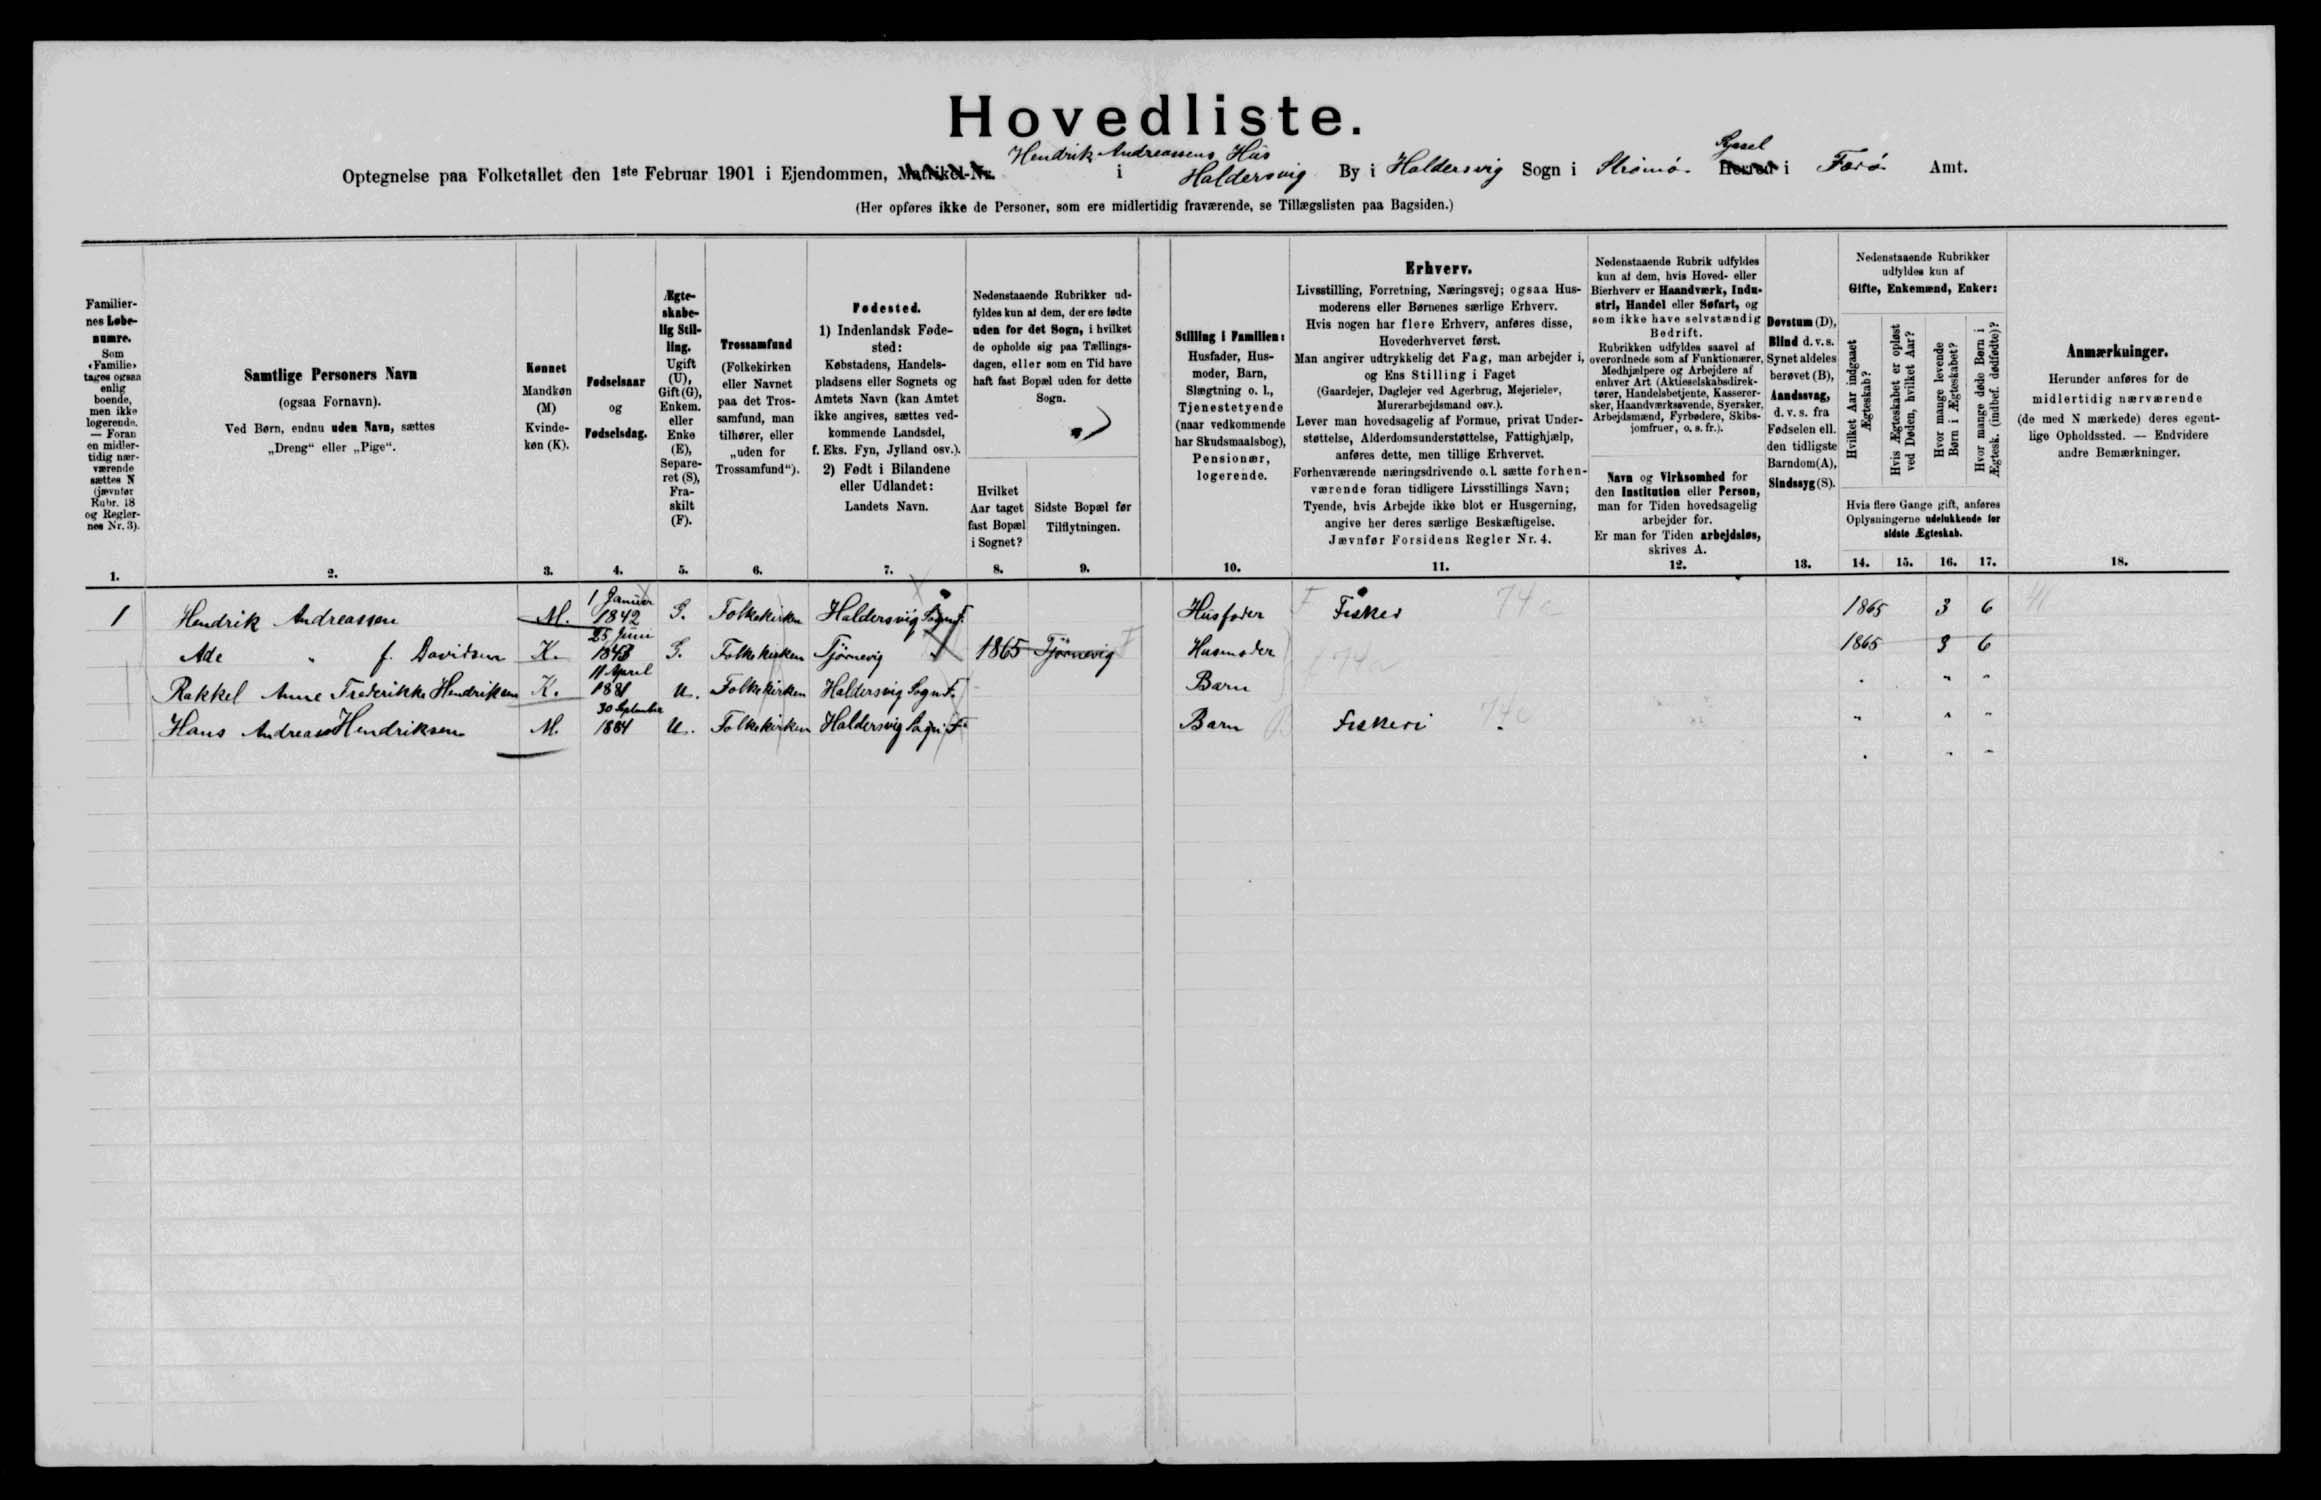 Hovedliste.
Hendrik Andreassens Hus
Syssel
Optegnelse paa Folketallet den 1ste Februar 1901 i Ejendommen, Matrikel-Nr. i Haldersvig By i Haldersvig Sogn i Strømø Herred i Færø Amt.
(Her opføres ikke de Personer, som ere midlertidig fraværende, se Tillægslisten paa Bagsiden.)
Familier-
nes Løbe-
numre.
Som
«Familie»
tages ogsaa
enlig
boende,
men ikke
logerende.
— Foran
en midler-
tidig nær-
værende
sættes N
(jævnfør
Rubr. 18
og Regler-
nes Nr. 3).
1.
Samtlige Personers Navn
(ogsaa Fornavn).
Ved Børn, endnu uden Navn, sættes
„Dreng“ eller „Pige“.
2.
Kønnet
Mandkøn
(M)
Kvinde-
køn (K).
3.
Fødselsaar
og
Fødselsdag.
4.
Ægte-
skabe-
lig Stil-
ling.
Ugift
(U),
Gift (G),
Enkem.
eller
Enke
(E),
Separe-
ret (S),
Fra-
skilt
(F).
5.
Trossamfund
(Folkekirken
eller Navnet
paa det Tros-
samfund, man
tilhører, eller
„uden for
Trossamfund“).
6.
Fødested.
1) Indenlandsk Føde-
sted:
Købstadens, Handels-
pladsens eller Sognets og
Amtets Navn (kan Amtet
ikke angives, sættes ved-
kommende Landsdel,
f. Eks. Fyn, Jylland osv.).
2) Født i Bilandene
eller Udlandet:
Landets Navn.
7.
Nedenstaaende Rubrikker ud-
fyldes kun af dem, der ere fødte
uden for det Sogn, i hvilket
de opholde sig paa Tællings-
dagen, eller som en Tid have
haft fast Bopæl uden for dette
Sogn.
Hvilket
Aar taget
fast Bopæl
i Sognet?
8.
Sidste Bopæl før
Tilflytningen.
9.
Stilling i Familien:
Husfader, Hus-
moder, Barn,
Slægtning o. l.,
Tjenestetyende
(naar vedkommende
har Skudsmaalsbog),
Pensionær,
logerende.
10.
Erhverv.
Livsstilling, Forretning, Næringsvej; ogsaa Hus-
moderens eller Børnenes særlige Erhverv.
Hvis nogen har flere Erhverv, anføres disse,
Hovederhvervet først.
Man angiver udtrykkelig det Fag, man arbejder i,
og Ens Stilling i Faget
(Gaardejer, Daglejer ved Agerbrug, Mejerielev,
Murerarbejdsmand osv.).
Lever man hovedsagelig af Formue, privat Under-
støttelse, Alderdomsunderstøttelse, Fattighjælp,
anføres dette, men tillige Erhvervet.
Forhenværende næringsdrivende o. l. sætte forhen-
værende foran tidligere Livsstillings Navn;
Tyende, hvis Arbejde ikke blot er Husgerning,
angive her deres særlige Beskæftigelse.
Jævnfør Forsidens Regler Nr. 4.
11.
Nedenstaaende Rubrik udfyldes
kun af dem, hvis Hoved- eller
Bierhverv er Haandværk, Indu-
stri, Handel eller Søfart, og
som ikke have selvstændig
Bedrift.
Rubrikken udfyldes saavel af
overordnede som af Funktionærer,
Medhjælpere og Arbejdere af
enhver Art (Aktieselskabsdirek-
tører, Handelsbetjente, Kasserer-
sker, Haandværkssvende, Syersker,
Arbejdsmænd, Fyrbødere, Skibs-
jomfruer, o. s. fr.).
Navn og Virksomhed for
den Institution eller Person,
man for Tiden hovedsagelig
arbejder for.
Er man for Tiden arbejdsløs,
skrives A.
12.
Døvstum (D),
Blind d. v. s.
Synet aldeles
berøvet (B),
Aandssvag,
d. v. s. fra
Fødselen ell.
den tidligste
Barndom (A),
Sindssyg (S).
13.
Nedenstaaende Rubrikker
udfyldes kun af
Gifte, Enkemænd, Enker:
Hvilket Aar indgaaet
Ægteskab?
Hvis Ægteskabet er opløst
ved Døden, hvilket Aar?
Hvor mange levende
Børn i Ægteskabet?
Hvor mange døde Børn i
Ægtesk. (indbef. dødfødte)?
Hvis flere Gange gift, anføres
Oplysningerne udelukkende for
sidste Ægteskab.
14. 15. 16. 17.
Anmærkninger.
Herunder anføres for de
midlertidig nærværende
(de med N mærkede) deres egent-
lige Opholdssted. — Endvidere
andre Bemærkninger.
18.
1 Hendrik Andreassen M. 1 Januar 1842 G. Folkekirken Haldersvig Sogn F. Husfader F Fisker 74a 1865 3 6
Ade " f. Davidsen K. 25 Juni 1843 G. Folkekirken Tjørnevig 1865 Tjørnevig F Husmoder 74a 1865 3 6
Rakkel Anne Frederikke Hendriksen K. 11 April 1881 U. Folkekirken Haldersvig Sogn F. Barn " "
Hans Andreas Hendriksen M. 30 September 1884 U. Folkekirken Haldersvig Sogn F. Barn Fiskeri " " "